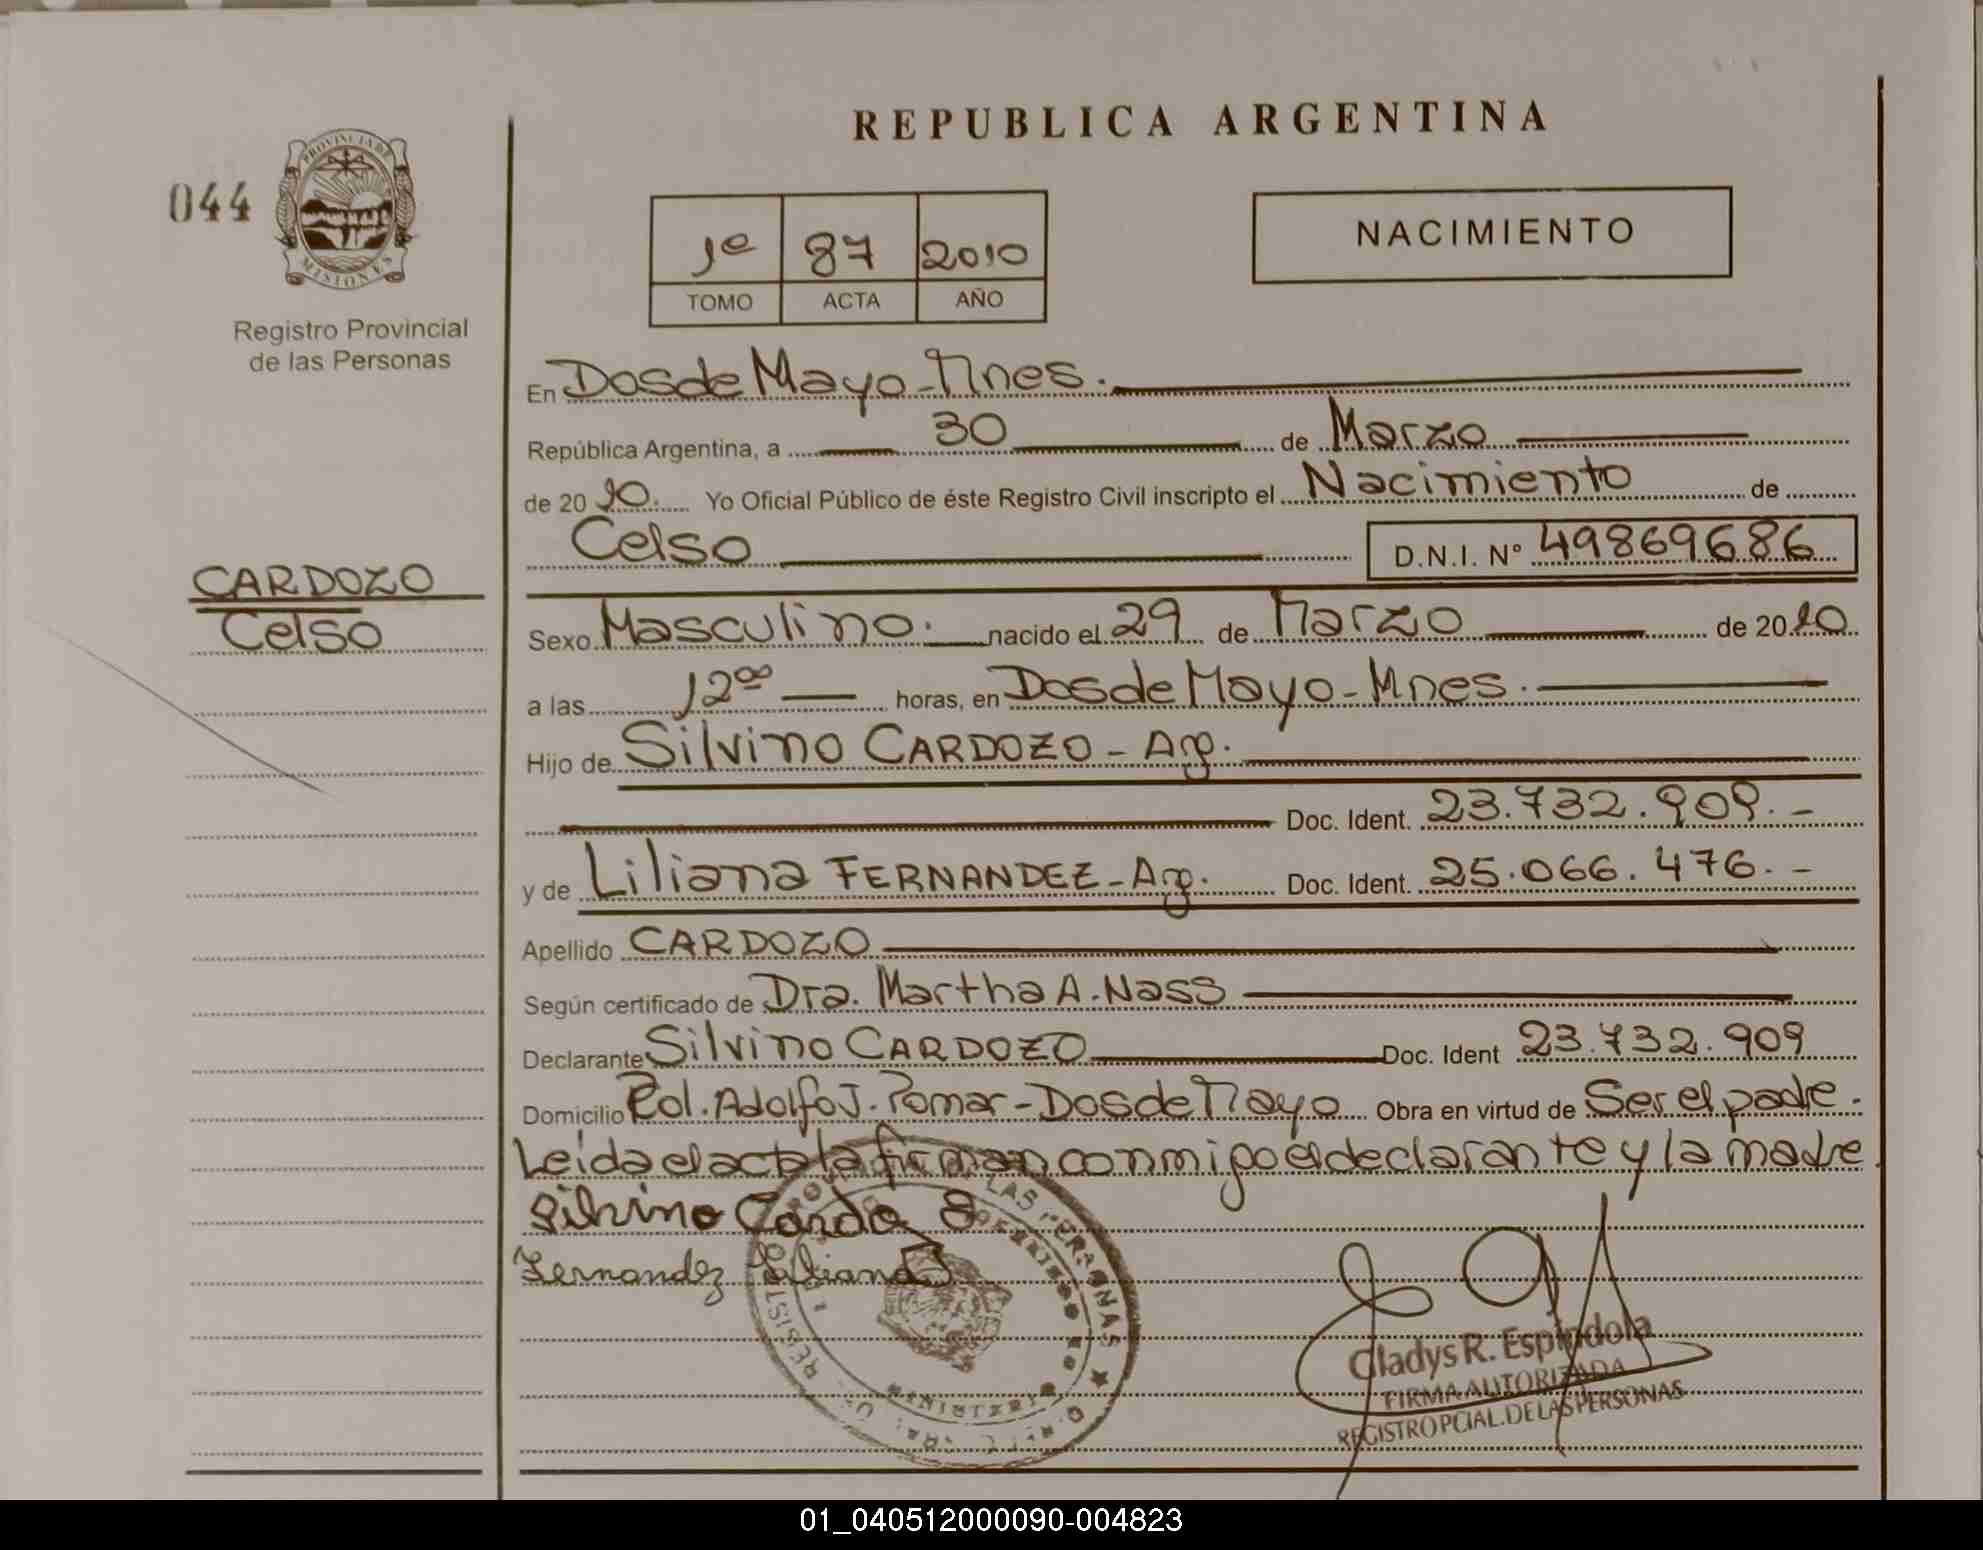 REPUBLICA ARGENTINA
044
PROVINCIA DE
MISIONES
Registro Provincial
de las Personas
1º 87 2010
TOMO ACTA AÑO
NACIMIENTO
En Dos de Mayo - Mnes.
República Argentina, a 30 de Marzo
de 20 10. Yo Oficial Público de éste Registro Civil inscripto el Nacimiento de
Celso D.N.I. Nº 49869686
CARDOZO
Celso
Sexo Masculino. nacido el 29 de Marzo de 20 10
a las 12⁰⁰ horas, en Dos de Mayo - Mnes.
Hijo de Silvino CARDOZO - Arg.
Doc. Ident. 23.732.909.-
y de Liliana FERNANDEZ - Arg. Doc. Ident. 25.066.476.-
Apellido CARDOZO
Según certificado de Dra. Martha A. Nass
Declarante Silvino CARDOZO Doc. Ident 23.732.909
Domicilio Pol. Adolfo J. Pomar - Dos de Mayo Obra en virtud de Ser el padre.
Leída el acta la firman conmigo el declarante y la madre.
Silvino Cardozo
Fernandez Liliana
LAS PERSONAS
Gladys R. Espindola
FIRMA AUTORIZADA
REGISTRO PCIAL. DE LAS PERSONAS
01_040512000090-004823